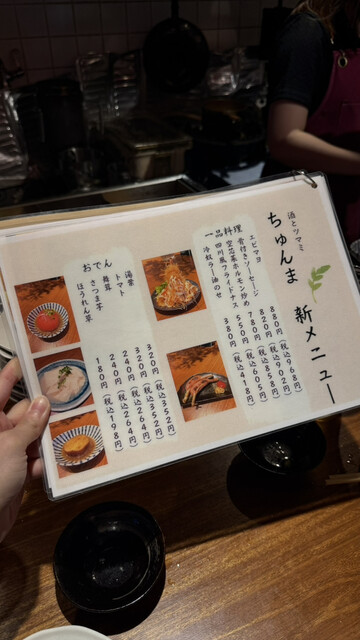 酒とツマミ
ちゅんま 新メニュー
一品料理
エビマヨ 880円(税込968円)
骨付きソーセージ 820円(税込902円)
空芯菜ホルモン炒め 780円(税込858円)
四川風フライドナス 550円(税込605円)
冷奴ラー油のせ 380円(税込418円)
おでん
湯葉 320円(税込352円)
トマト 320円(税込352円)
舞茸 240円(税込264円)
さつま芋 240円(税込264円)
ほうれん草 180円(税込198円)